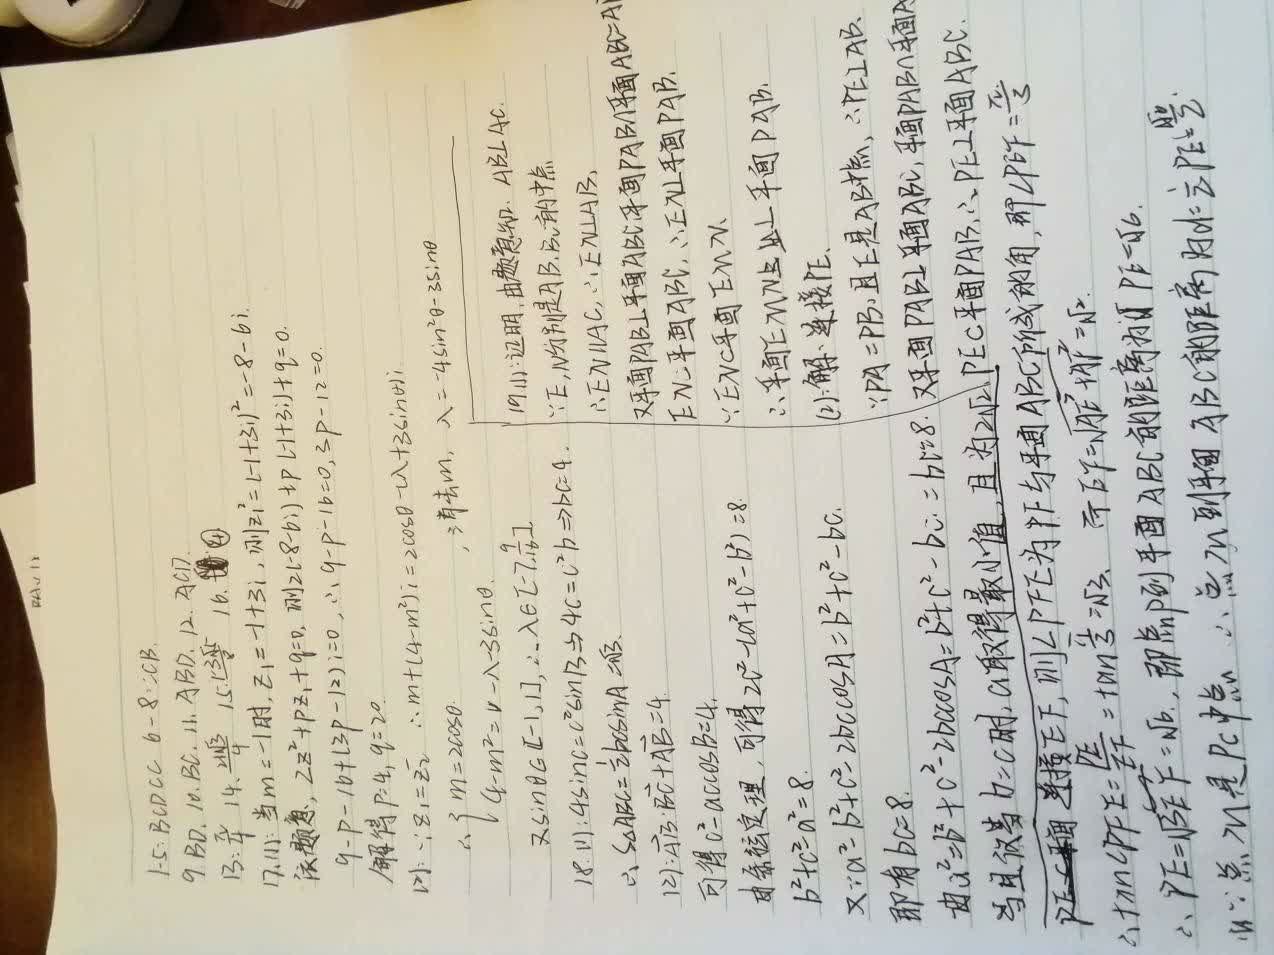 1-5: BCDCC 6-8: CB.
9. BD. 10. BC. 11. ABD. 12. ACD.
13: π/4 14. 16. ④
17.(1): 当m=-1时, z₁=-1+3i, 则z₁²=(-1+3i)²=-8-6i.
依题意, 2z²+pz₁+q=0, 则2(-8-6i)+p(-1+3i)+q=0.
q-p-16+(3p-12)i=0, ∴q-p-16=0, 3p-12=0.
解得p=4, q=20
(2): ∵z₁=z₂ ∴m+(4-m²)i=2cosθ+(λ+3sinθ)i.
∴{m=2cosθ
{4-m²=λ+3sinθ , 消去m, λ=4sin²θ-3sinθ
又sinθ∈[-1,1], ∴λ∈[-9/16,7]
18.(1): 4sinc=c²sinB⇒4c=c²b⇒bc=4.
∴S△ABC=½bcsinA=√3.
(2): AB·BC+AB²=4
可得c²-accosB=4.
由余弦定理, 可得2c²-(a²+c²-b²)=8
b²+c²-a²=8.
又∵a²=b²+c²-2bccosA=b²+c²-bc.
即有bc=8.
由a²=b²+c²-2bccosA=b²+c²-bc≥bc=8.
当且仅当b=c时, a取得最小值, 且为2√2.
19.(1): 证明: 由题意知, AB⊥AC.
∵E,N分别是AB,BC的中点
∴EN∥AC, ∴EN⊥AB,
又平面PAB⊥平面ABC,平面PAB∩平面ABC=
EN⊂平面ABC, ∴EN⊥平面PAB.
∵EN⊂平面EMN.
∴平面EMN⊥平面PAB.
(2): 解: 连接PE.
∵PA=PB, 且E是AB中点, ∴PE⊥AB.
又平面PAB⊥平面ABC, 平面PAB∩平面
PE⊂平面PAB, ∴PE⊥平面ABC.
连接EF, 则∠PFE为PF与平面ABC所成的角, 即∠PFE=π/3
∴tan∠PFE=PE/EF=tanπ/3=√3 而EF=√AE²+AF²=√2.
∴PE=√3EF=√6, 即点P到平面ABC的距离为PE=√6.
∵点M是PC中点 ∴点M到平面ABC的距离为d=½PE=√6/2.